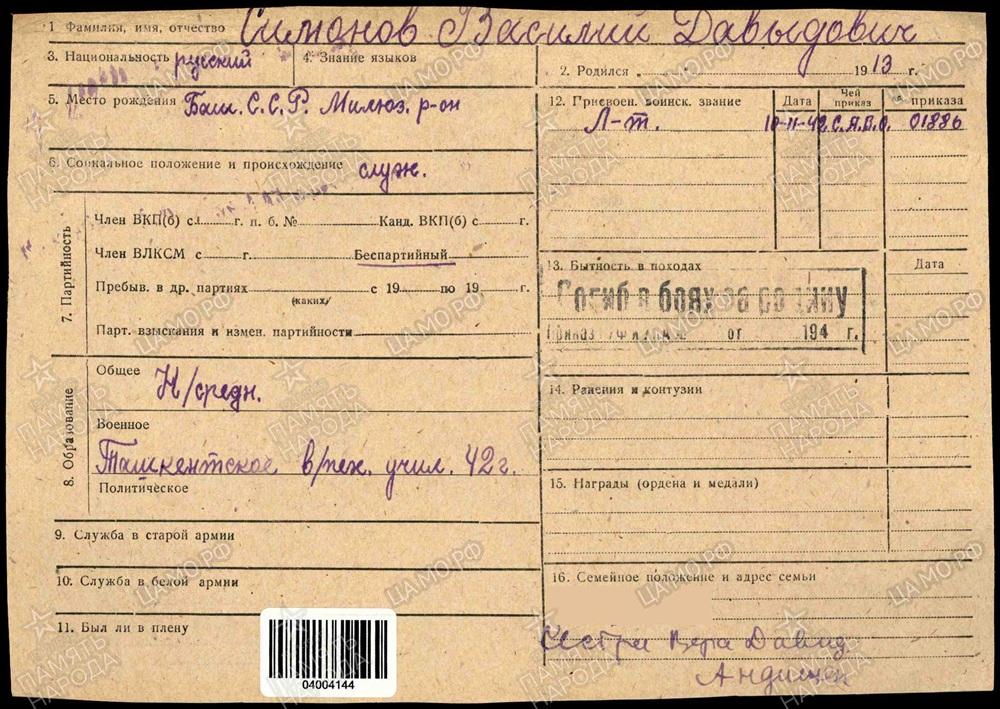 1 Фамилия, имя, отчество Симонов Василий Давыдович
3. Национальность русский
4. Знание языков
2. Родился 1913 г.
5. Место рождения Баш. С.С.Р. Милюз. р-он
12. Присвоен. воинск. звание Дата Чей приказ № приказа
Л-т. 10-11-42 С.А.В.О. 01886
6. Социальное положение и происхождение служ.
7. Партийность
Член ВКП(б) с г. п. б. № Канд. ВКП(б) с г.
Член ВЛКСМ с г. Беспартийный
Пребыв. в др. партиях с 19 по 19 г.
(каких)
Парт. взыскания и измен. партийности
13. Бытность в походах Дата
Погиб в боях за родину
Приказ ГУФ КА № от 194 г.
8. Образование
Общее Н/средн.
Военное
Ташкентское в/пех. учил. 42 г.
Политическое
14. Ранения и контузии
15. Награды (ордена и медали)
9. Служба в старой армии
10. Служба в белой армии
11. Был ли в плену
16. Семейное положение и адрес семьи
Сестра Вера Давид
Андижан
04004144
ПАМЯТЬ НАРОДА
ЦАМО.РФ